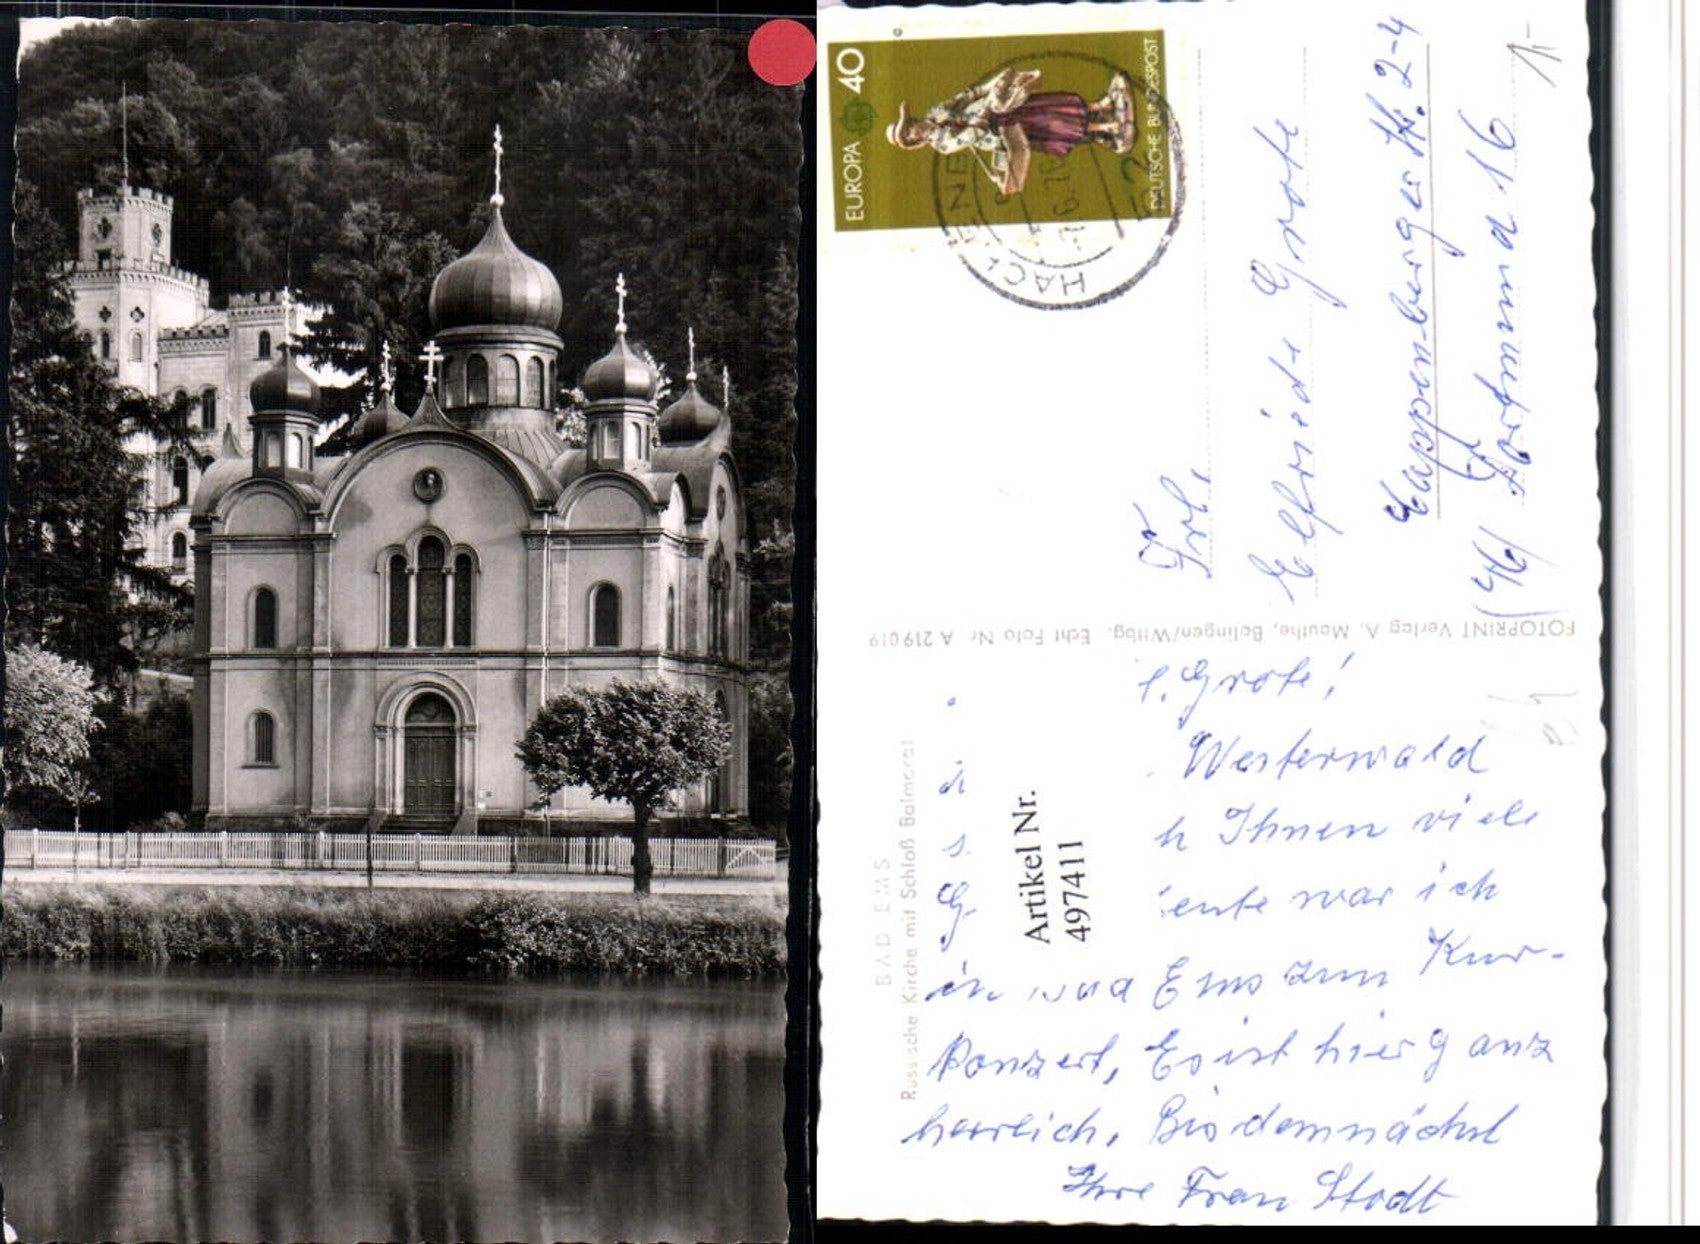 EUROPA 40
DEUTSCHE BUNDESPOST
HACHENB
Frl.
Elfriede Grote
Kappenbergerstr. 2-4
(46) Dortmund 16
1,-
FOTOPRINT Verlag A. Mauthe, Balingen/Wttbg. Echt Foto Nr. A 219 019
BAD EMS
Russische Kirche mit Schloß Balmoral
Artikel Nr.
497411
l. Grote!
Westerwald
h Ihnen viele
G
war ich
Ems zum Kur-
konzert, Es ist hier ganz
herrlich, Bis demnächst
Ihre Frau Stodt